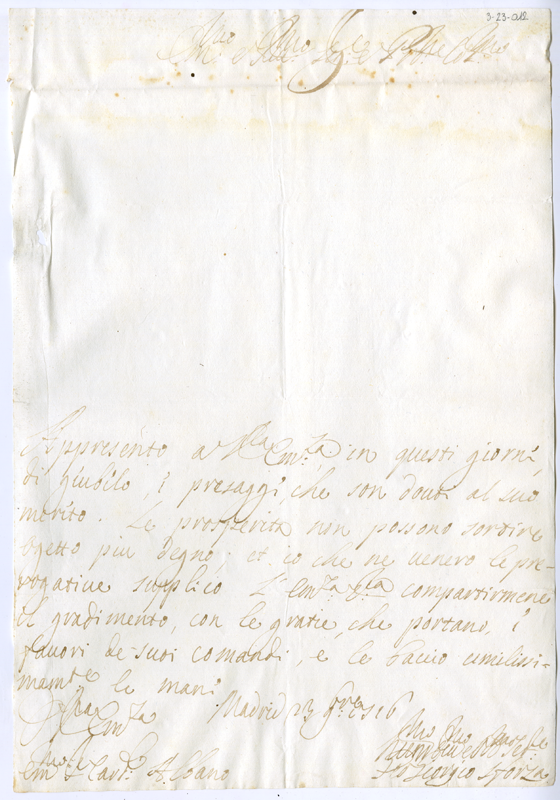 3-23-012
Em.mo e Rev.mo Sig.re e P.rone Col.mo
Appresento a V.ra Em.za in questi giorni,
di giubilo, i presaggi, che son douti al suo
merito. Le prosperità non possono sortire
ogetto più degno; et io che ne uenero le pre-
rogatiue supplico l'Em.za V.ra compartirmene
il gradimento, con le gratie, che portano, i
fauori de suoi comandi, e le bacio umilissi-
mam.te le mani
V.ra Em.za Madrid 23
Em.mo S. Card. Albano
Giorgio Sforza